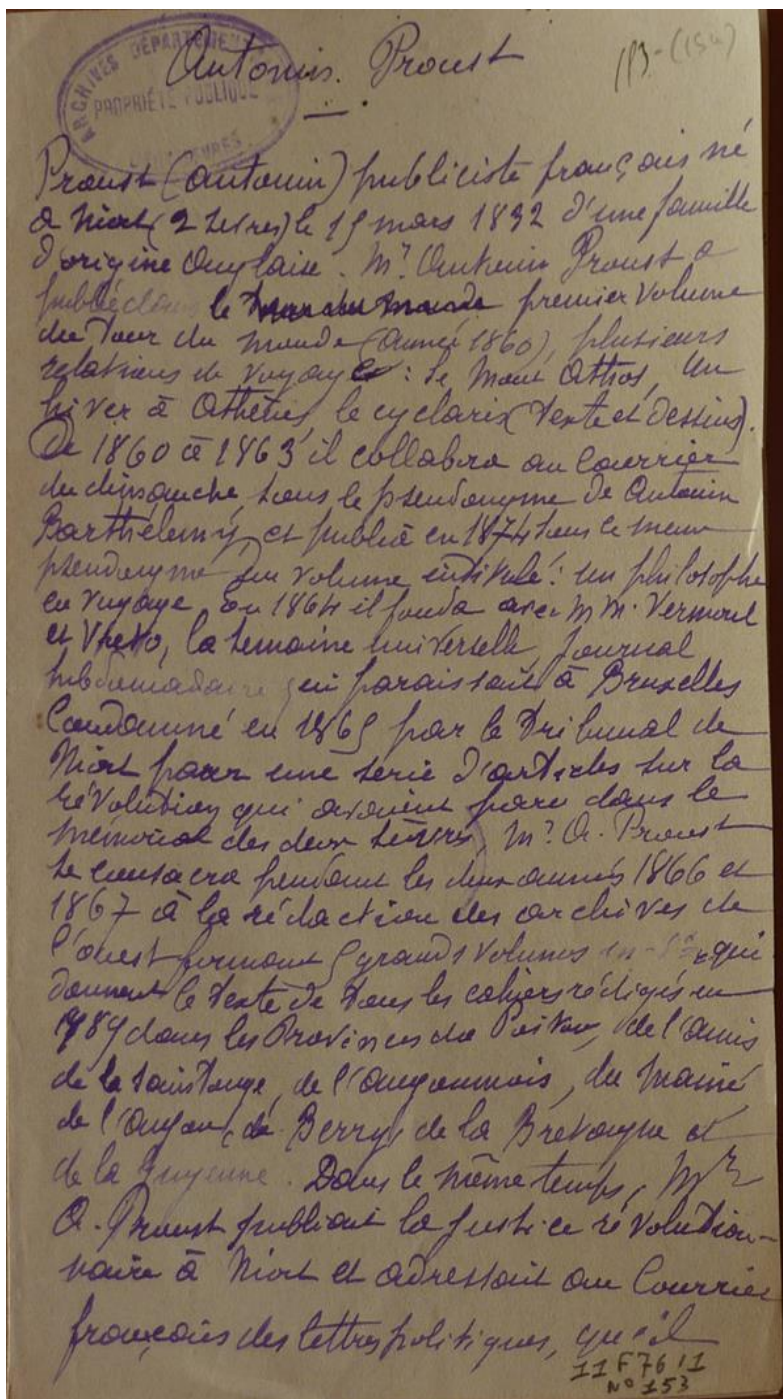 ARCHIVES DÉPARTEMEN
PROPRIÉTÉ PUBLIQUE
SEVRES
Antonin. Proust
113-(154)
Proust (Antonin) publiciste français né
à Niort (2 Sevres) le 15 mars 1832 d'une famille
d'origine Anglaise. Mr Antonin Proust a
publié dans le premier volume
du Tour du monde (année 1860), plusieurs
relations de voyage : le Mont Athos, Un
hiver à Athènes, le cyclaris (Texte et dessins).
De 1860 à 1863 il collabora au Courrier
du dimanche, sous le pseudonyme de Antonin
Barthélemy, et publia en 1874 sous ce meme
pseudonyme un volume intitulé : un philosophe
en voyage. En 1864 il fonda avec MM. Vermorel
et, la semaine universelle, journal
hebdomadaire qui paraissait à Bruxelles
Condamné en 1865 par le Tribunal de
Niort pour une serie d'articles sur la
révolution qui avaient paru dans le
mémorial des deux Sèvres, Mr A. Proust
se consacra pendant les deux années 1866 et
1867 à la rédaction des archives de
l'ouest formant 5 grands volumes in-8° qui
donnent le texte de tous les cahiers rédigés en
1789 dans les Provinces du Poitou, de l'Aunis
de la Saintonge, de l'Angoumois, du Maine
de l'Anjou, du Berry, de la Bretagne et
de la Guyenne. Dans le même temps, Mr
A. Proust publiait la justice révolution-
naire à Niort et adressait au Courrier
français des lettres politiques, qu'il
11 F 76 11
N° 153